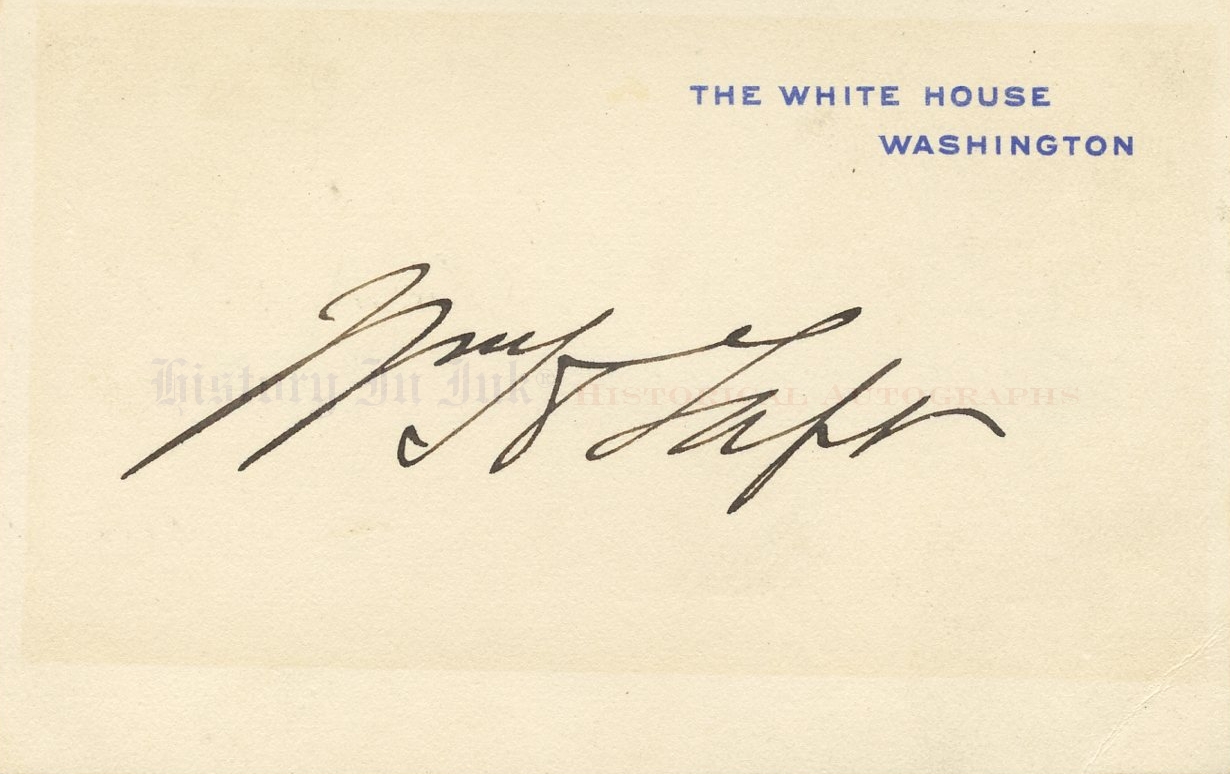 THE WHITE HOUSE
WASHINGTON
Wm H Taft
History In Ink® HISTORICAL AUTOGRAPHS